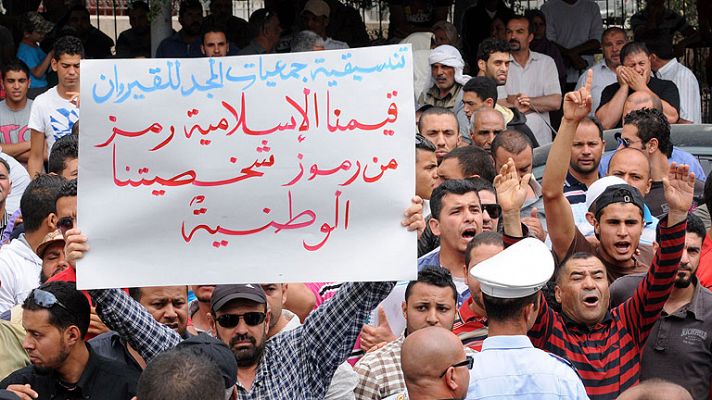 تنسيقية جمعيات المجد للقيروان
قيمنا الإسلامية رمز
من رموز شخصيتنا
الوطنية